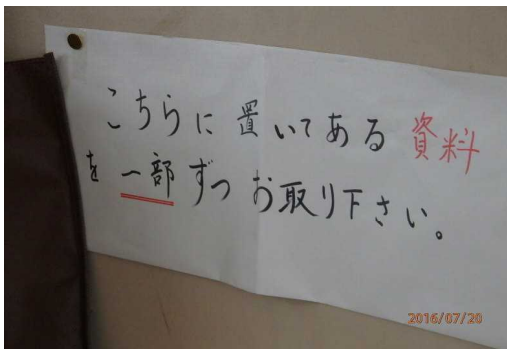 こちらに置いてある資料
を一部ずつお取り下さい。
2016/07/20